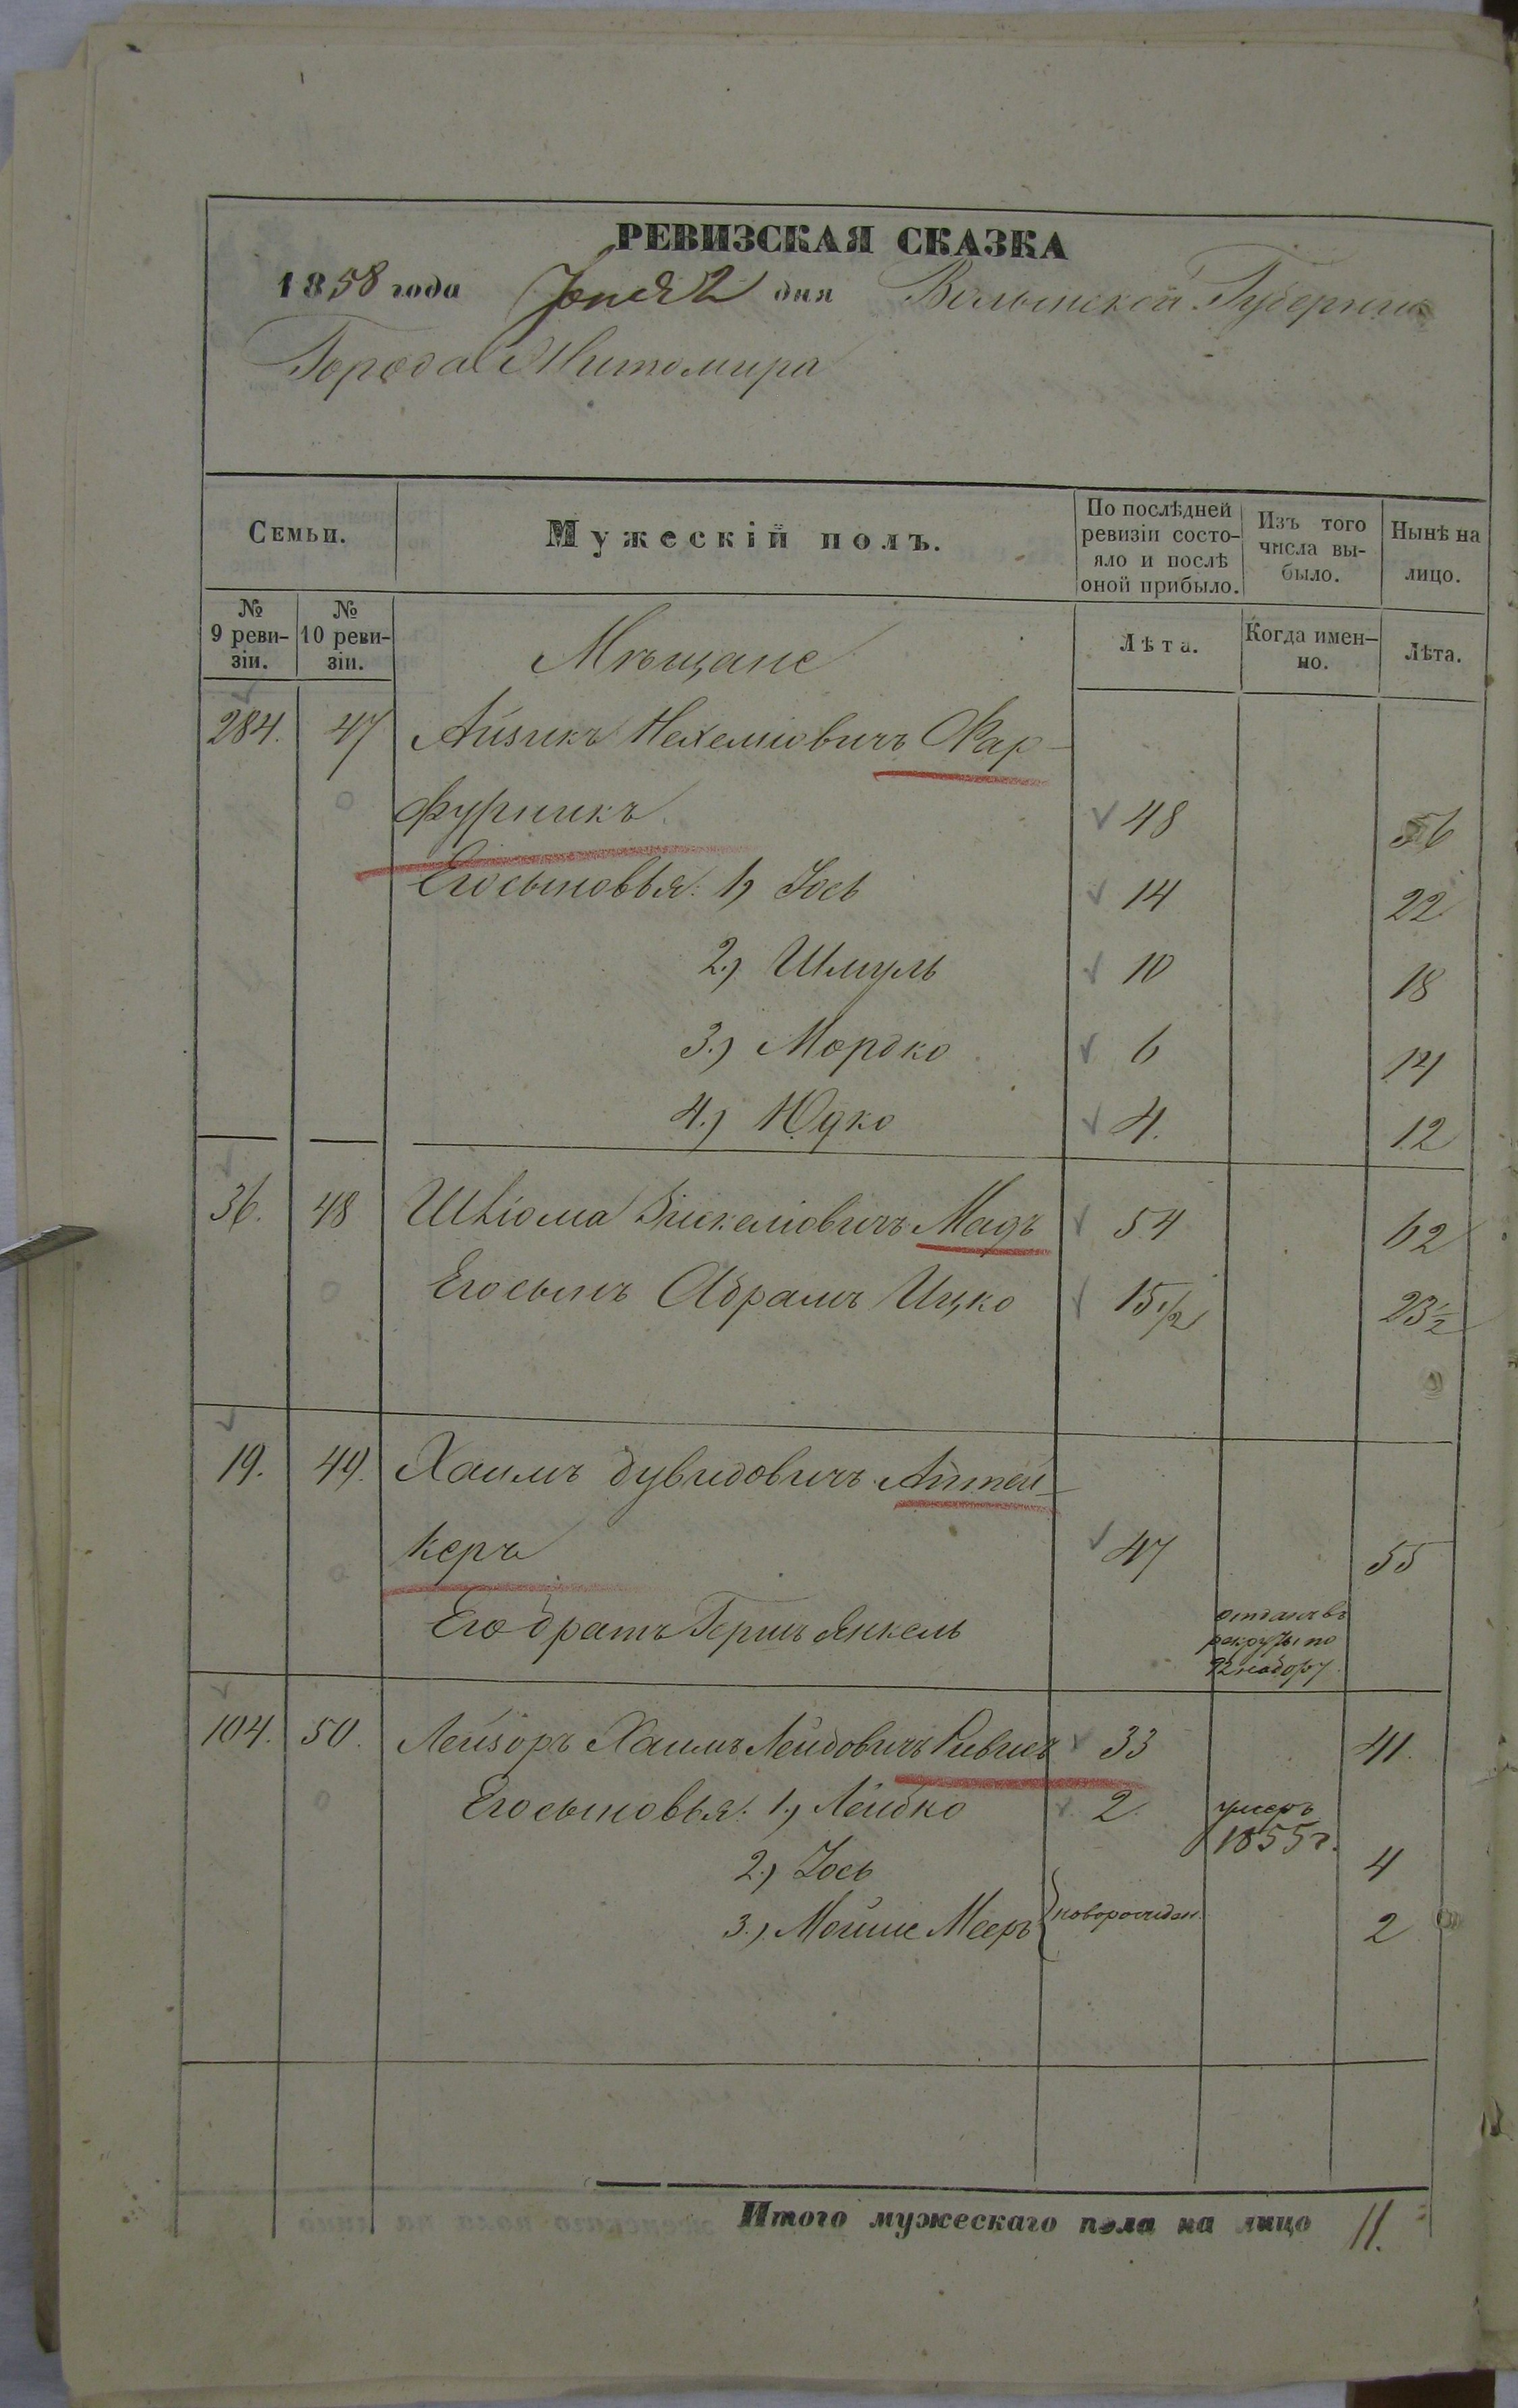 РЕВИЗСКАЯ СКАЗКА
1858 года Іюня 2 дня Волынской Губерніи
Города Житомира
Семьи.
Мужескій полъ.
По послѣдней ревизіи состо-
яло и послѣ оной прибыло.
Изъ того числа вы-
было.
Нынѣ на лицо.
№ 9 реви-
зіи.
№ 10 реви-
зіи.
Мѣщане
Лѣта.
Когда имен-
но.
Лѣта.
284. 47 Айзикъ Нехеміовичъ Фар-
фурникъ 48 56
Его сыновья: 1) Іось 14 22
2.) Шмуль 10 18
3.) Мордко 6 14
4.) Юдко 4. 12
36. 48 Шліома Мадъ 54 62
Его сынъ Абрамъ Ицко 15 1/2 23 1/2
19. 49. Хаимъ Дувидовичъ Аптей-
керъ 47 55
Его братъ Гершъ Янкель отданъ въ
рекруты по
набору
104. 50. Лейзоръ Хаимъ Лейбовичъ Ривисъ 33 41.
Его сыновья: 1.) Лейбко 2. умеръ
1855 г.
2.) Іось 4
3.) Мойше Мееръ новорожден. 2
Итого мужескаго пола на лицо 11.